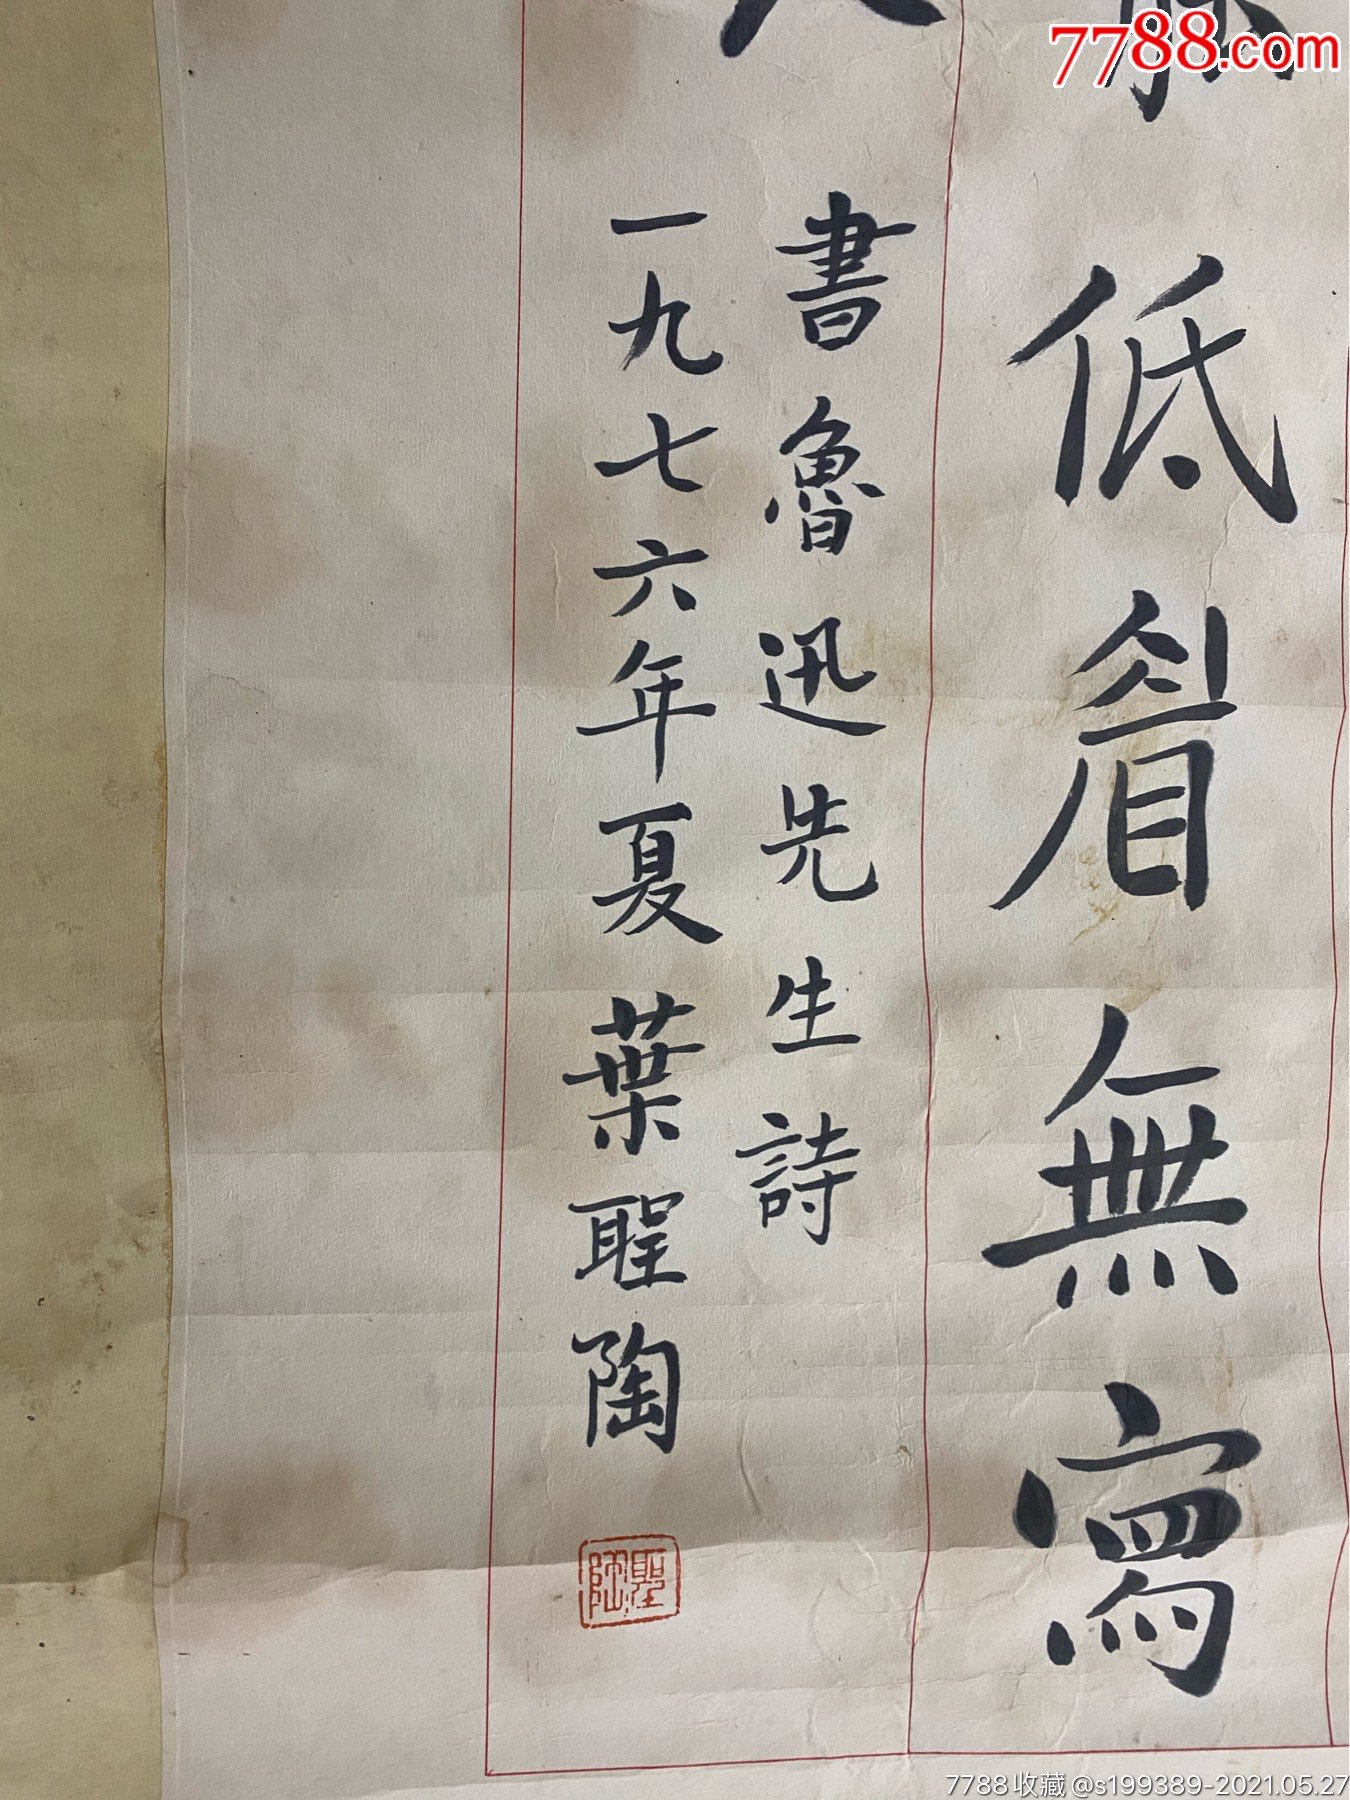 7788.com
低眉無寫
書魯迅先生詩
一九七六年夏 葉聖陶
聖陶
7788收藏@s199389-2021.05.27